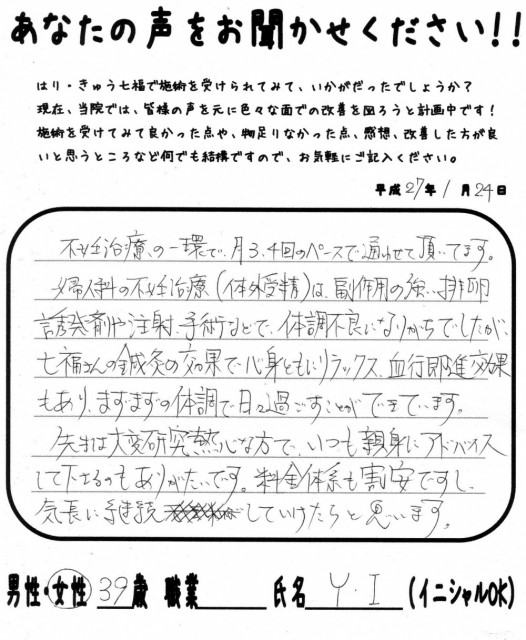 あなたの声をお聞かせください!!
はり・きゅう七福で施術を受けられてみて、いかがだったでしょうか?
現在、当院では、皆様の声を元に色々な面での改善を図ろうと計画中です!
施術を受けてみて良かった点や、物足りなかった点、感想、改善した方が良
いと思うところなど何でも結構ですので、お気軽にご記入ください。
平成27年1月24日
不妊治療の一環で、月3、4回のペースで通わせて頂いてます。
婦人科の不妊治療(体外受精)は、副作用の強い排卵
誘発剤や注射、手術などで、体調不良になりがちでしたが、
七福さんの鍼灸の効果で心身ともにリラックス、血行促進効果
もあり、まずまずの体調で日々過ごすことができています。
先生は大変研究熱心な方で、いつも親身にアドバイス
して下さるのもありがたいです。料金体系も割安ですし、
気長に継続していけたらと思います。
男性・女性 39歳 職業 氏名 Y.I (イニシャルOK)